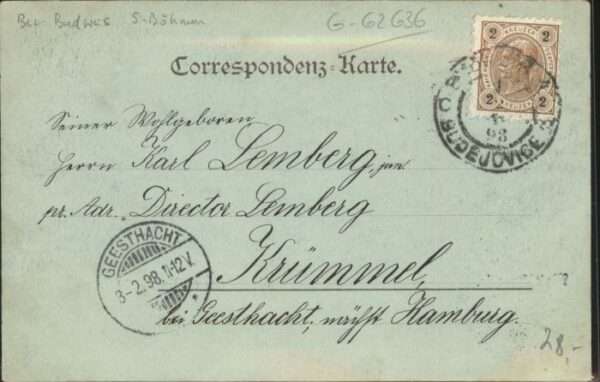 Budweis S-Böhmen
G-62636
2 KREUZER 2
2 2
Correspondenz-Karte.
BUDĚJOVICE
98
Seiner Wohlgeboren
Herrn Karl Lemberg, jun
pr. Adr. Director Lemberg
GEESTHACHT.
3-2.98.11-12V.
Krümmel
bei Geesthacht, nächst Hamburg.
28,-